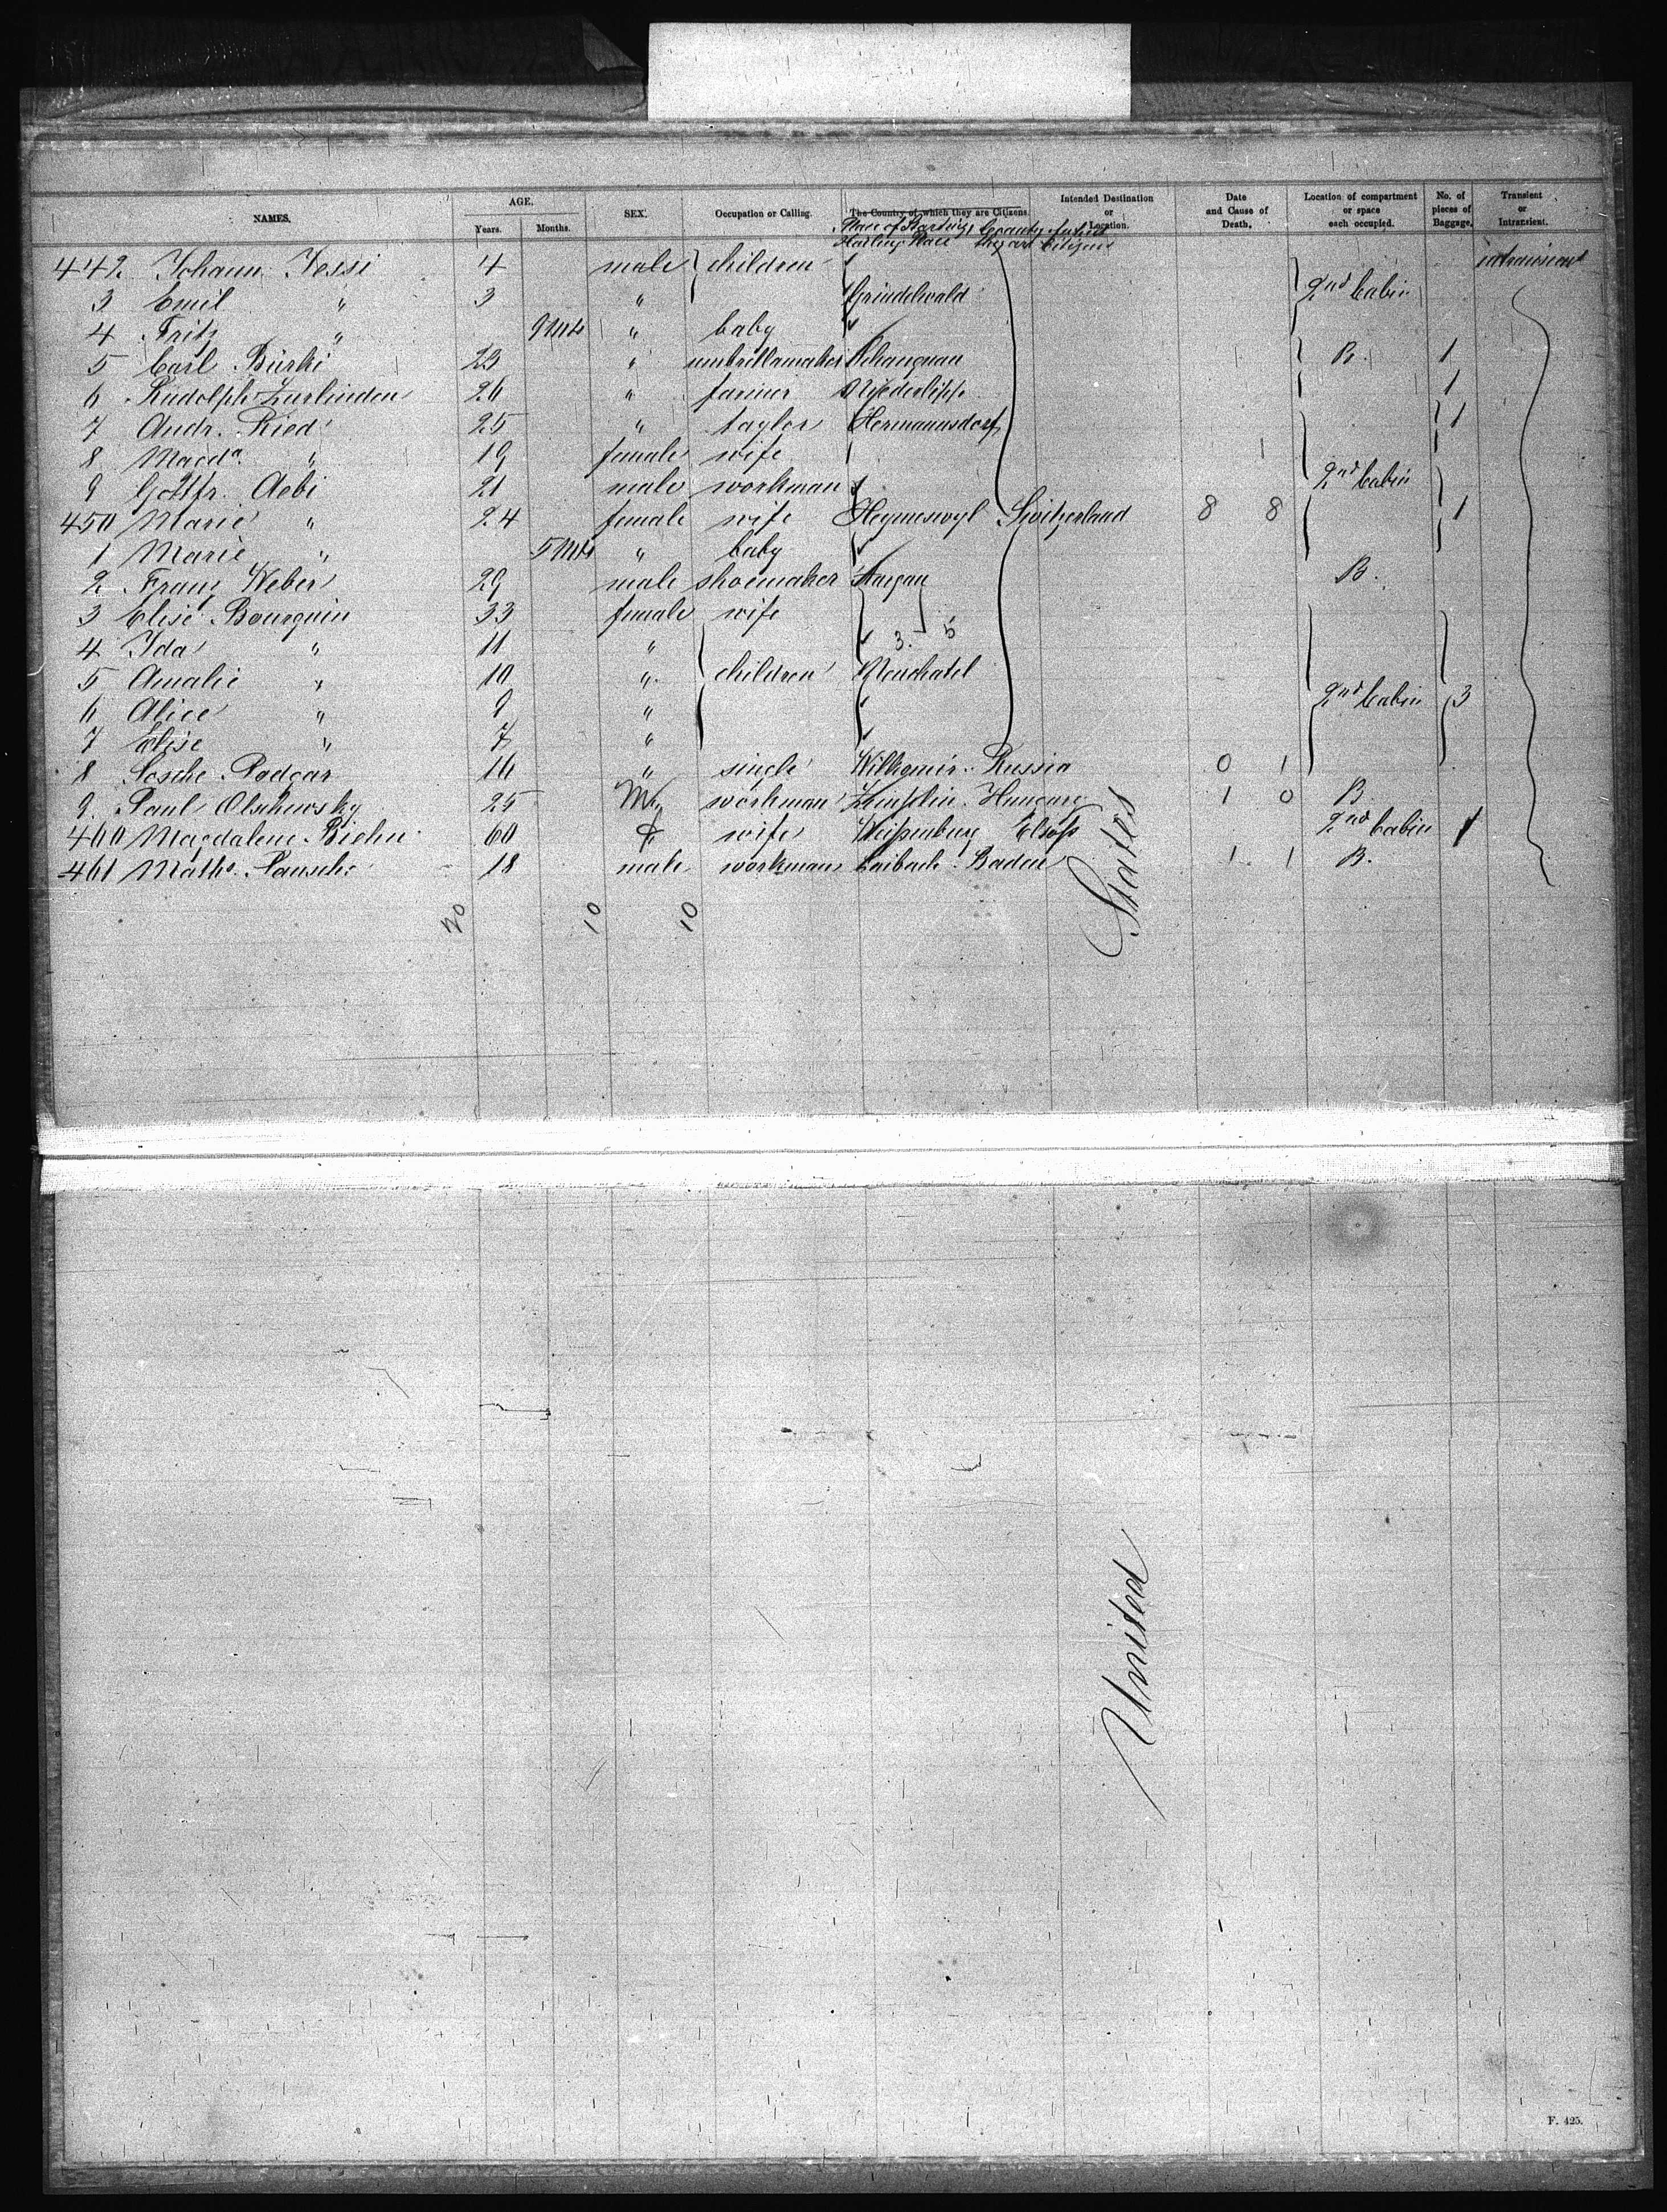 NAMES. AGE. Years. Months. SEX. Occupation or Calling. The Country of which they are Citizens. Intended Destination or Location. Date and Cause of Death. Location of compartment or space each occupied. No. of pieces of Baggage. Transient or Intransient.
Place of Starting Country of which
Starting Place they are Citizens
442 Johann Jossi 4 male children
3 Emil " 3 " Grindelwald 2nd Cabin
4 Fritz " 9 Mts " baby
5 Carl Bürki 23 " umbrellamaker B. 1
6 Rudolph Zurlinden 26 " farmer Niederbipp 1
7 Andr. Ried 25 " taylor Hermannsdorf 1
8 Magda " 19 female wife
9 Gottfr. Aebi 21 male workman 2nd Cabin
450 Marie " 24 female wife Heymeswyl Switzerland 8 8 1
1 Marie " 5 Mts " baby
2 Franz Weber 29 male shoemaker Aargau B.
3 Elise Bourquin 33 female wife
4 Ida " 11 " 3. 5
5 Amalie " 10 " children Neuchatel
6 Alice " 9 " 2nd Cabin 3
7 Elise " 7 "
8 Sosche Podgar 16 " single Wilkomir Russia 0 1
9. Paul Olschewsky 25 M. workman Zemplin Hungary 1 0 B
460 Magdalene Biehn 60 f wife Weissenburg Elsass 2nd Cabin 1
461 Maths. 18 male workman Laibach Baden 1 1 B.
20 10 10
States
United
F. 425.